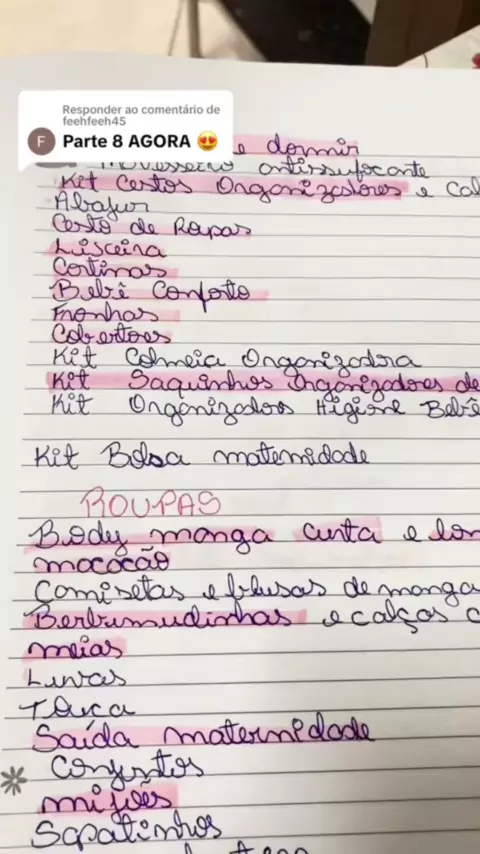 Responder ao comentário de
feehfeeh45
F
Parte 8 AGORA 😍
e dormir
antissufocante
Kit Cestos Organizadores e
Abajur
Cesto de Roupas
Lixeira
Cortinas
Bebê Conforto
Fronhas
Cobertores
Kit Colmeia Organizadora
Kit Saquinhos Organizadores de
Kit Organizadores Higiene Bebê
Kit Bolsa maternidade
ROUPAS
Body manga curta e
macacão
Camisetas e blusas de manga
Berbumudinhas e calças
meias
Luvas
Touca
Saída maternidade
Conjuntos
mijões
Sapatinhos